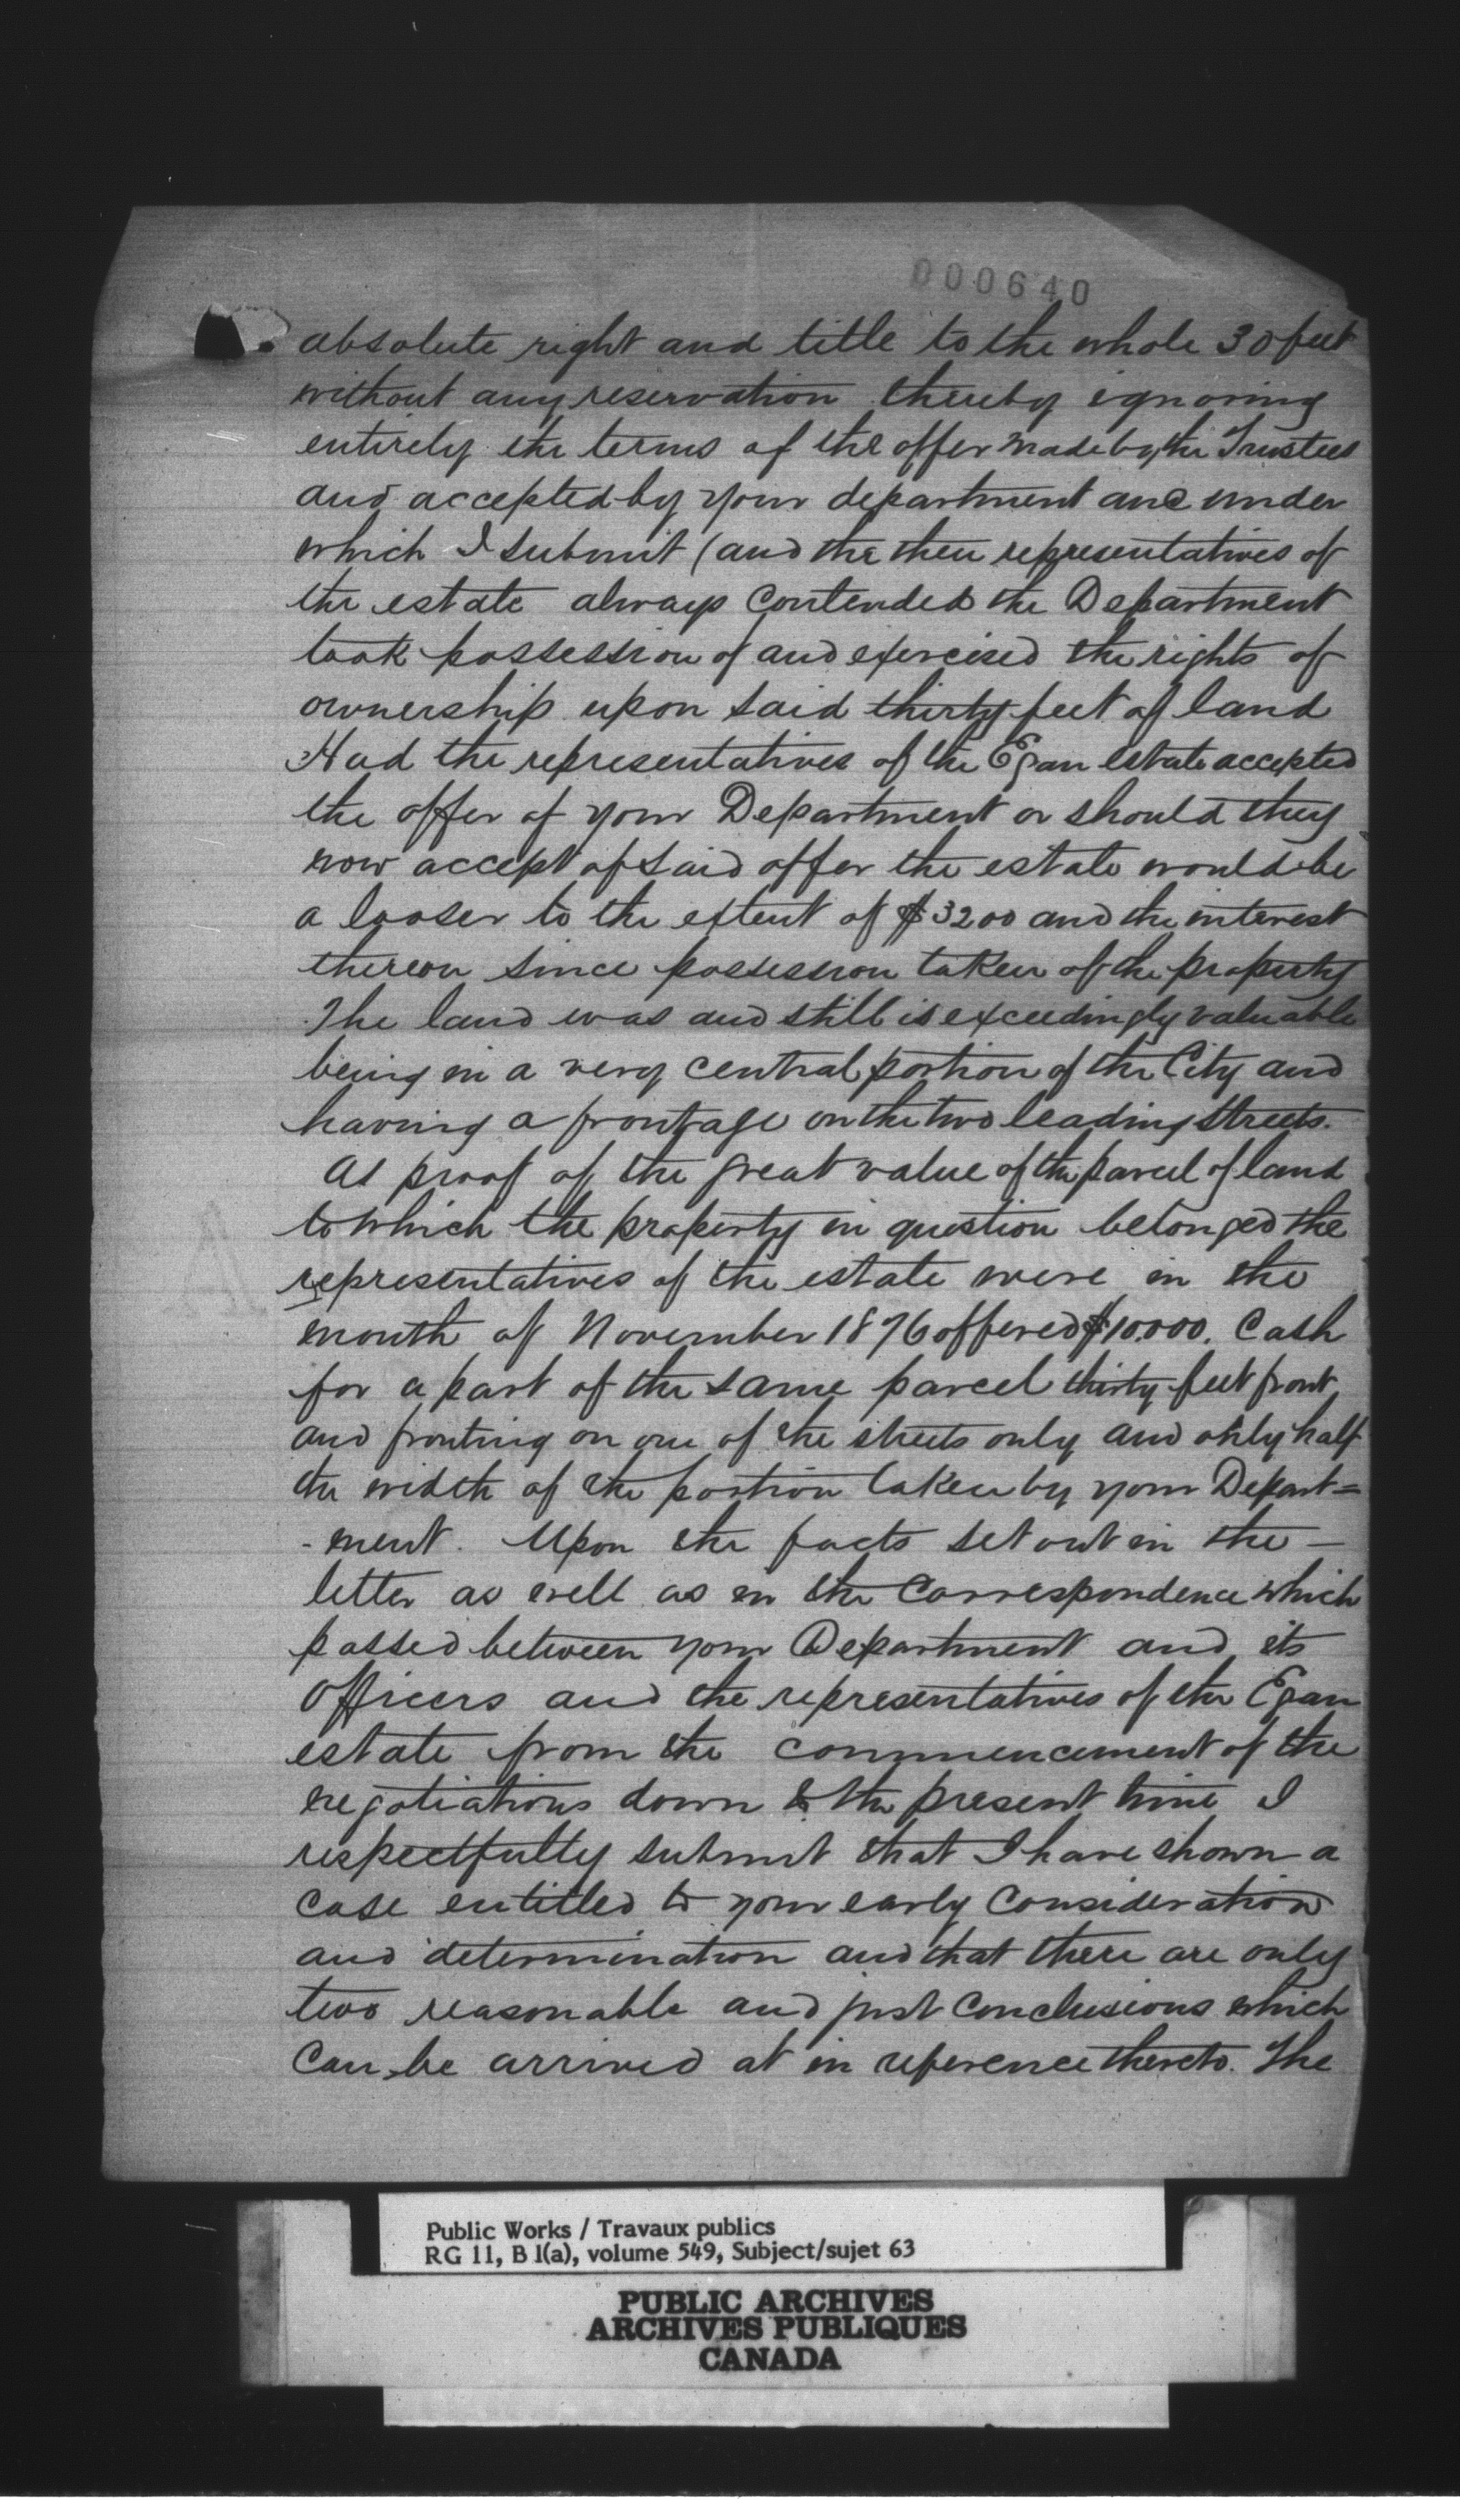 000640
absolute right and title to the whole 30 feet
without any reservation thereby ignoring
entirely the terms of the offer made by the Trustees
and accepted by your department and under
which I submit (and the then representatives of
the estate always contended the Department
took possession of and exercised the rights of
ownership upon said thirty feet of land
Had the representatives of the Egan estate accepted
the offer of your Department or should they
now accept of said offer the estate would be
a looser to the extent of $3200 and the interest
thereon since possession taken of the property
The land was and still is exceedingly valuable
being in a very central portion of the City and
having a frontage on the two leading streets.
As proof of the great value of the parcel of land
to which the property in question belonged the
representatives of the estate were in the
month of November 1876 offered $10.000. Cash
for a part of the same parcel thirty feet front
and fronting on one of the streets only and only half
the width of the portion taken by your Depart=
-ment. Upon the facts set out in the —
letter as well as in the Correspondence which
passed between your Department and its
Officers and the representatives of the Egan
estate from the commencement of the
negotiations down to the present time I
respectfully submit that I have shown a
case entitled to your early Consideration
and determination and that there are only
two reasonable and just Conclusions which
Can be arrived at in reference thereto. The
Public Works / Travaux publics
RG 11, B 1(a), volume 549, Subject/sujet 63
PUBLIC ARCHIVES
ARCHIVES PUBLIQUES
CANADA